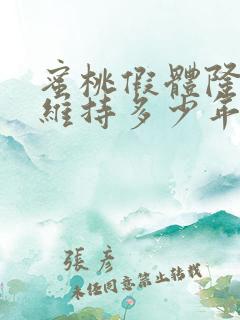 蜜桃假體隆
維持多少年
張彥
未經同意禁止轉載